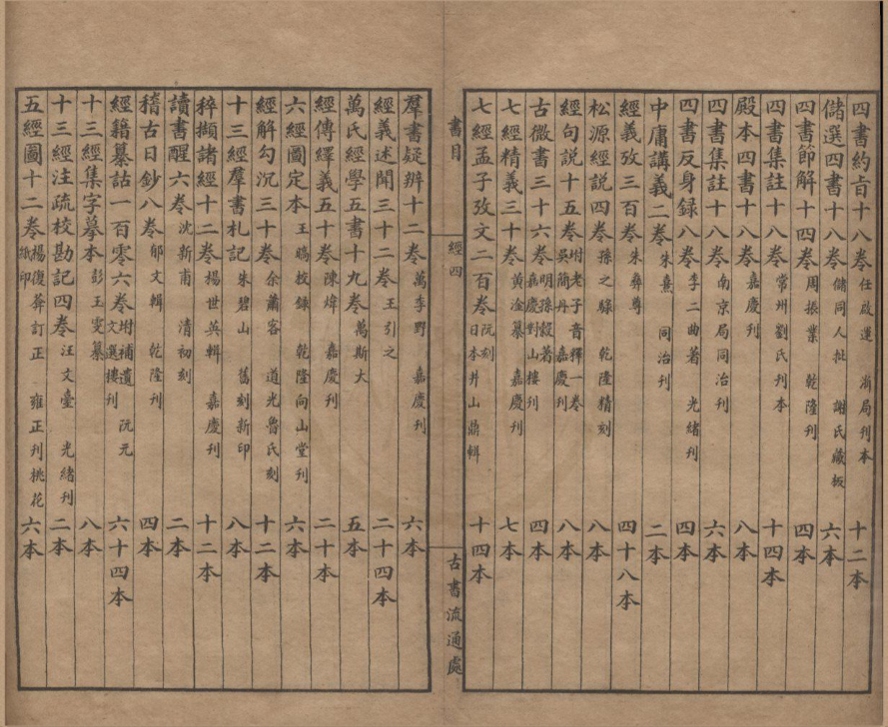 四書約旨十八卷 任啟運 浙局刊本 十二本
儲選四書十八卷 儲同人批 謝氏藏板 六本
四書節解十四卷 周振業 乾隆刊 四本
四書集註十八卷 常州劉氏刊本 十四本
殿本四書十八卷 嘉慶刊 八本
四書集註十八卷 南京局同治刊 六本
四書反身録八卷 李二曲著 光緒刊 四本
中庸講義二卷 朱熹 同治刊 二本
經義攷三百卷 朱彝尊 四十八本
松源經説四卷 孫之騄 乾隆精刻 八本
經句説十五卷 坿老子音釋一卷 吳簡丹 嘉慶刊 八本
古微書三十六卷 明孫瑴著 嘉慶對山樓刊 四本
七經精義三十卷 黃淦纂 嘉慶刊 七本
七經孟子攷文二百卷 阮刻 日本井山鼎輯 十四本
書目
經四
古書流通處
羣書疑辨十二卷 萬季野 嘉慶刊 六本
經義述聞三十二卷 王引之 二十四本
萬氏經學五書十九卷 萬斯大 五本
經傳繹義五十卷 陳煒 嘉慶刊 二十本
六經圖定本 王皜校錄 乾隆向山堂刊 六本
經解勾沉三十卷 余蕭客 道光魯氏刻 十二本
十三經羣書札記 朱碧山 舊刻新印 八本
稡擷諸經十二卷 楊世英輯 嘉慶刊 十二本
讀書醒六卷 沈新甫 清初刻 二本
稽古日鈔八卷 郁文輯 乾隆刊 四本
經籍纂詁一百零六卷 坿補遺 阮元 文選樓刊 六十四本
十三經集字摹本 彭玉雯纂 八本
十三經注疏校勘記四卷 汪文臺 光緒刊 二本
五經圖十二卷 楊復菴訂正 雍正刊桃花紙印 六本